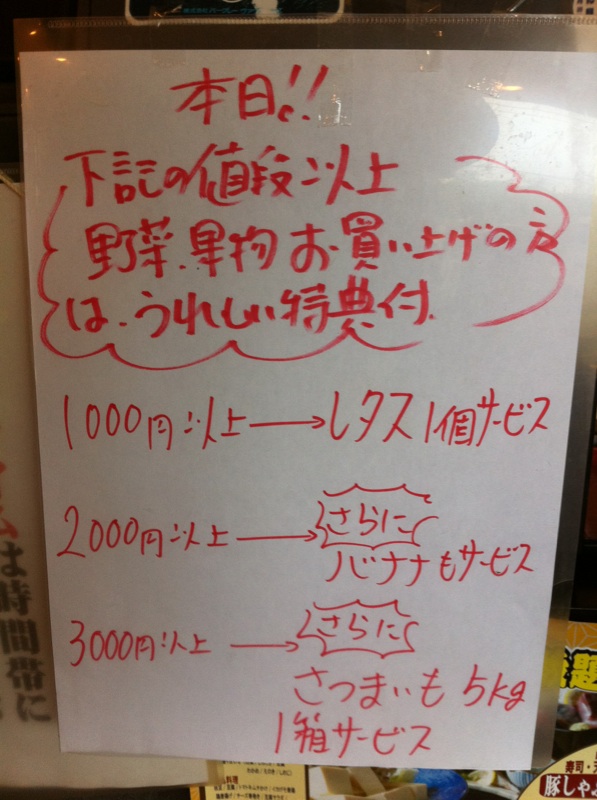 本日!!
下記の値段以上
野菜、果物お買い上げの方
は、うれしい特典付.
1000円以上→レタス1個サービス
2000円以上→さらに
バナナもサービス
3000円以上→さらに
さつまいも5kg
1箱サービス
は時間帯に
料理
寿司・天
豚しゃぶ